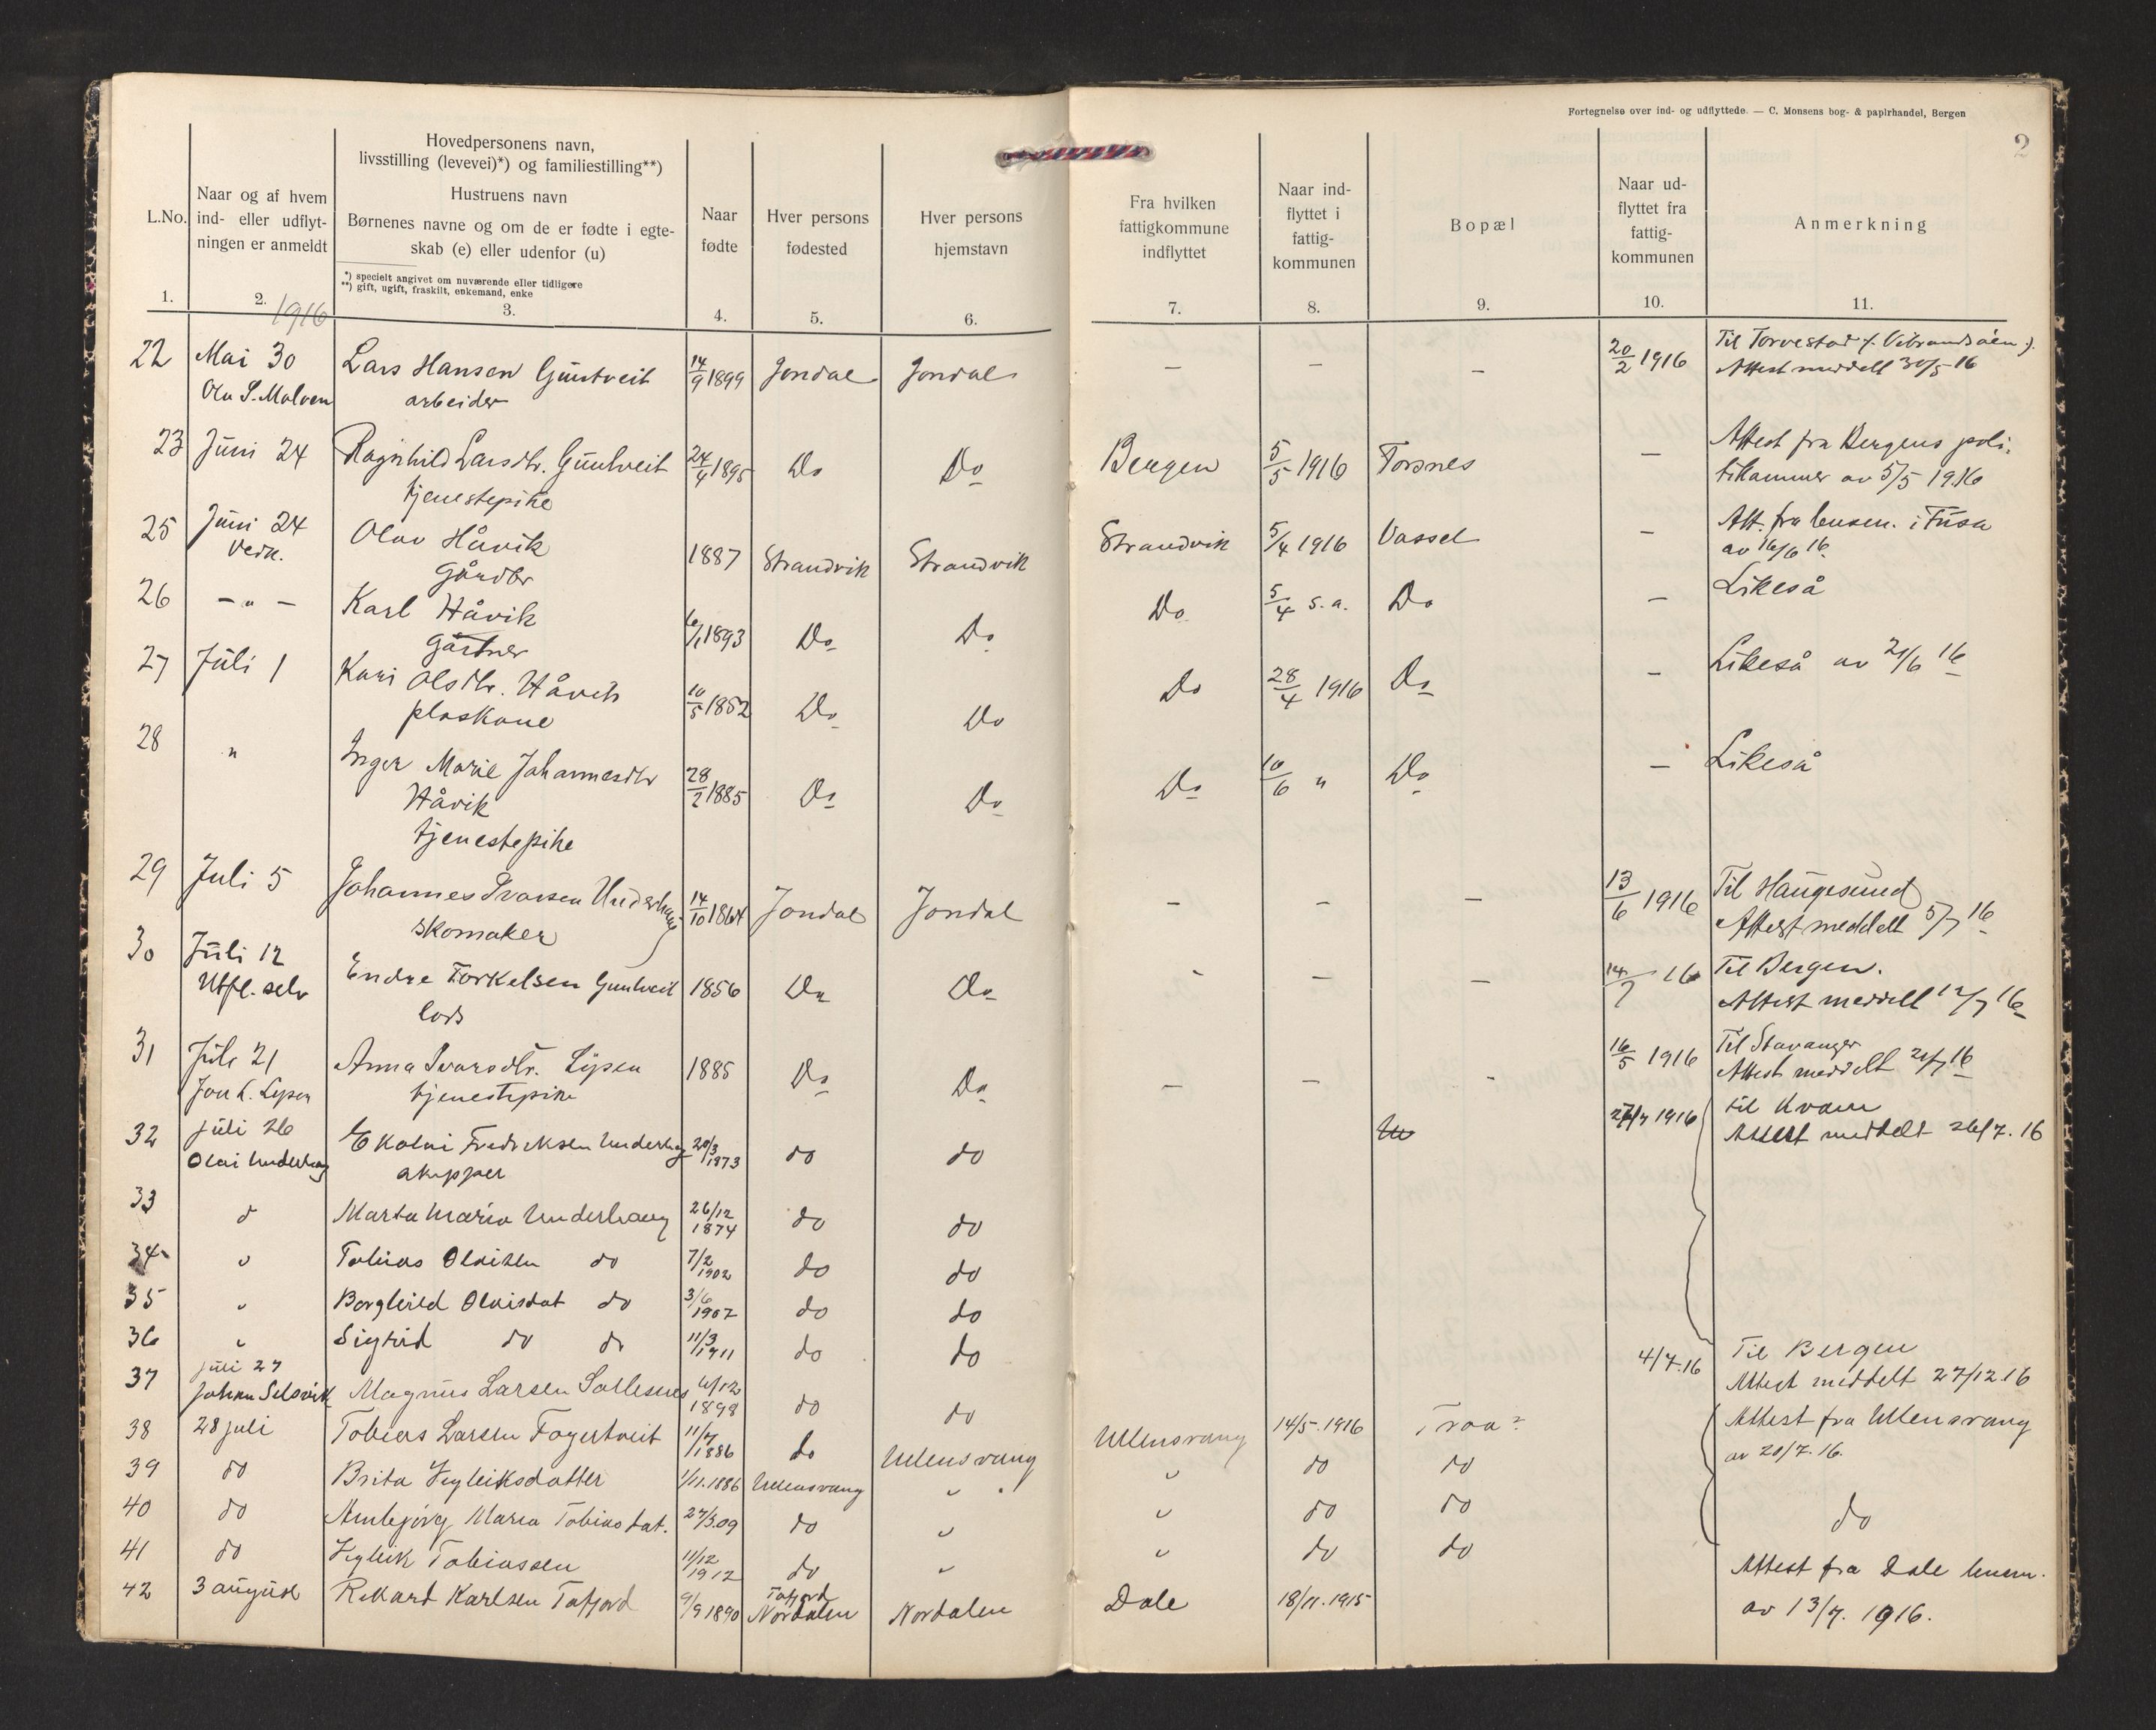 Fortegnelse over ind- og udflyttede. — C. Monsens bog- & papirhandel, Bergen
2
L.No.
Naar og af hvem
ind- eller udflyt-
ningen er anmeldt
Hovedpersonens navn,
livsstilling (levevei)*) og familiestilling**)
Hustruens navn
Børnenes navne og om de er fødte i egte-
skab (e) eller udenfor (u)
*) specielt angivet om nuværende eller tidligere
**) gift, ugift, fraskilt, enkemand, enke
Naar
fødte
Hver persons
fødested
Hver persons
hjemstavn
Fra hvilken
fattigkommune
indflyttet
Naar ind-
flyttet i
fattig-
kommunen
Bopæl
Naar ud-
flyttet fra
fattig-
kommunen
Anmerkning
1. 2. 3. 4. 5. 6. 7. 8. 9. 10. 11.
1916
22 Mai 30 Lars Hansen Guntveit 14/9 1899 Jondal Jondal — — — 20/2 1916 Til Torvestad
Ola S. Malven arbeider Attest meddelt 30/5 16
23 Juni 24 Ragnhild Larsdtr. Guntveit 24/4 1895 Do Do Bergen 5/5 1916 Torsnes — Attest fra Bergens poli-
tjenestepike tikammer av 5/5 1916
25 Juni 24 Olav Håvik 1887 Strandvik Strandvik Strandvik 5/4 1916 Vassel — Att. fra lensm. i Fusa
Gårdbr av 16/6 16
26 — " — Karl Håvik 6/1 1893 Do Do Do 5/4 s.a. Do — Likeså
Gartner
27 Juli 1 Kari Olsdtr. Håvik 10/5 1852 Do Do Do 28/4 1916 Do — Likeså av 21/6 16
plaskone
28 " Inger Marie Johannesdtr 28/2 1885 Do Do Do 10/6 " Do — Likeså
Håvik
tjenestepike
29 Juli 5 Johannes Ivarsen Underhaug 14/10 1864 Jondal Jondal — — — 13/6 1916 Til Haugesund
skomaker Attest meddelt 5/7 16
30 Juli 12 Endre Torkelsen Guntveit 1856 Do Do - — — 14/7 16 Til Bergen.
Utfl. selv lods Attest meddelt 12/7 16
31 Juli 21 Anna Ivarsdtr. Lysen 1885 Do Do — — - 16/5 1916 Til Stavanger
Jon L. Lysen tjenestepike Attest meddelt 21/7 16
32 juli 26 Olai Fredriksen Underhaug 20/3 1873 do do 27/7 1916 til Kvam
Olai Underhaug skipper Attest meddelt 26/7. 16
33 d Marta Maria Underhaug 26/12 1874 do do
34 " Tobias Olaisen do 7/2 1902 do do
35 " Borghild Olaisdat do 3/6 1907 do do
36 " Sigrid do do 11/3 1911 do do
37 juli 27 Magnus Larsen Sollesnes 6/12 1898 do do 4/7.16 Til Bergen
Johan Selsvik Attest meddelt 27/12.16
38 28 juli Tobias Larsen Fagertveit 11/7 1886 do Ullensvang Ullensvang 14/5.1916 Traa? Attest fra Ullensvang
av 20/7.16.
39 do Brita Vigleiksdatter 1/11.1886 Ullensvang " " do do
40 do Annbjørg Maria Tobiasdat. 27/3.09 do " " do do do
41 do Vigleik Tobiassen 11/12 1912 do " " do do
42 3 august Rikard Karlsen Tafjord 9/9 1890 Tafjord Nordalen Nordalen Dale 18/11.1915 Attest fra Dale lensm.
av 13/7. 1916.